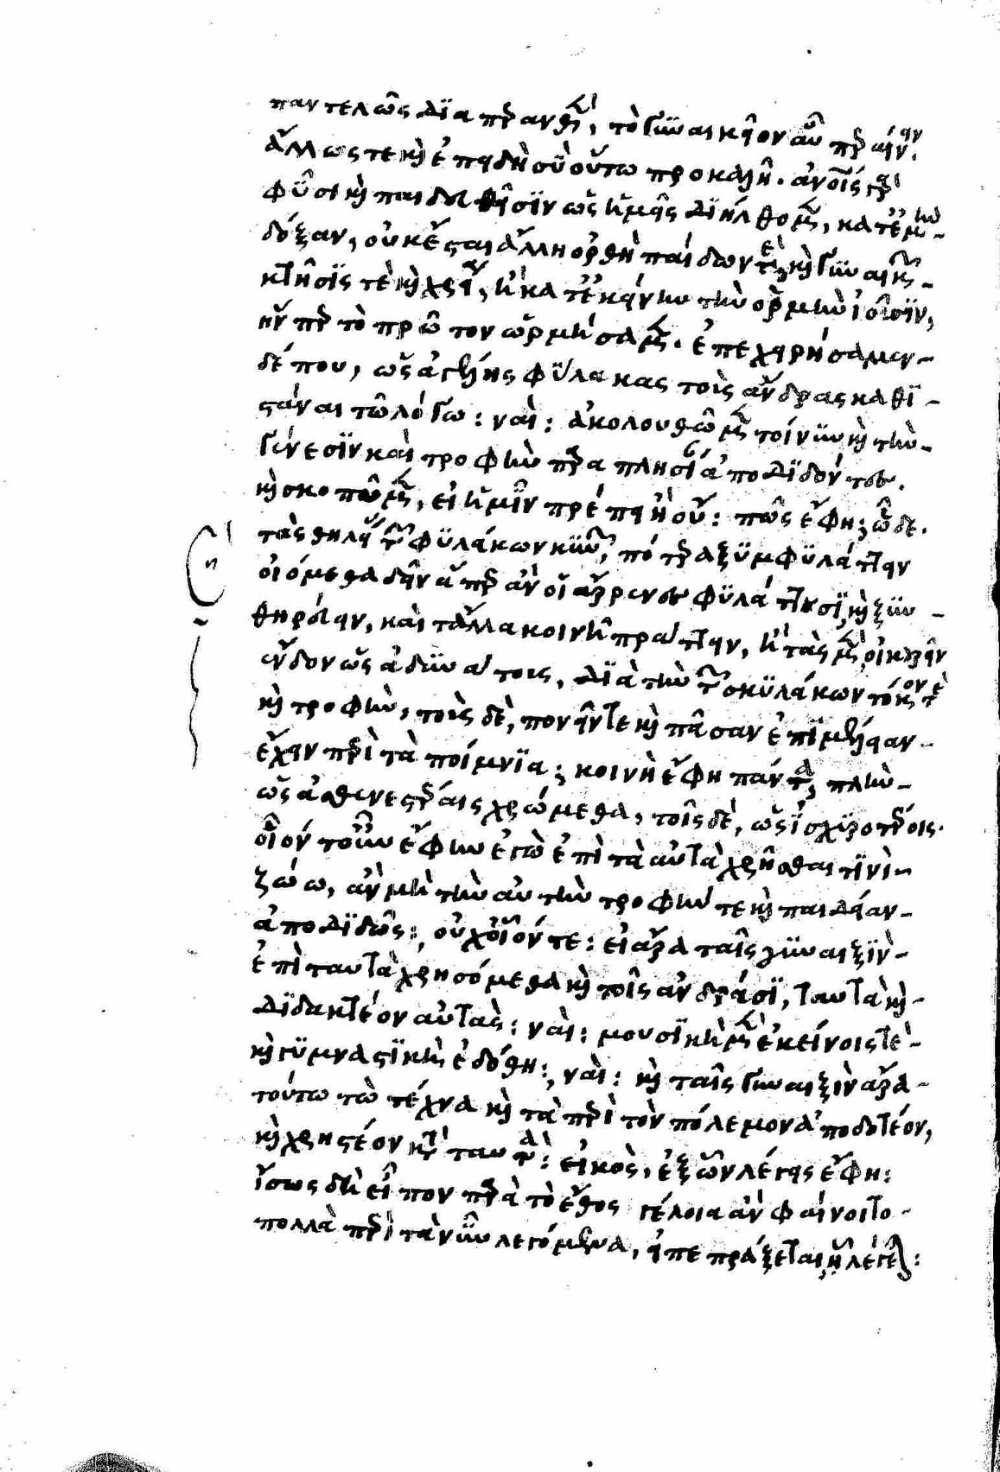 παντελῶς διαπερανθὲν, τὸ γυναικεῖον αὖ περαίνειν.
ἄλλως τε καὶ ἐπειδὴ σὺ οὕτω προκαλῇ. ἀνθρώποις γὰρ
φῦσι καὶ παιδευθεῖσιν ὡς ἡμεῖς διήλθομεν, κατ' ἐμὴν
δόξαν, οὐκ ἔστι ἄλλη ὀρθὴ παίδων τε καὶ γυναικῶν
κτῆσίς τε καὶ χρεία, ἢ κατ' ἐκείνην τὴν ὁρμὴν ἰοῦσιν,
ἥνπερ τὸ πρῶτον ὡρμήσαμεν. ἐπεχειρήσαμεν
δέ που, ὡς ἀγέλης φύλακας τοὺς ἄνδρας καθι-
στάναι τῷ λόγῳ: ναί: ἀκολουθῶμεν τοίνυν καὶ τὴν
γένεσιν καὶ τροφὴν παραπλησίαν ἀποδιδόντες.
καὶ σκοπῶμεν, εἰ ἡμῖν πρέπει ἢ οὔ: πῶς ἔφη; ὧδε.
τὰς θηλείας τῶν φυλάκων κυνῶν, πότερα ξυμφυλάττειν
οἰόμεθα δεῖν ἅπερ ἂν οἱ ἄρρενες φυλάττωσι, καὶ ξυν
θηρεύειν, καὶ τἄλλα κοινῇ πράττειν, ἢ τὰς μὲν οἰκουρεῖν
ἔνδον ὡς ἀδυνάτους, διὰ τὴν τῶν σκυλάκων τόκον τὲ
καὶ τροφὴν, τοὺς δὲ, πονεῖν τε καὶ πᾶσαν ἐπιμέλειαν
ἔχειν περὶ τὰ ποίμνια; κοινῇ ἔφη πάντα, πλὴν
ὡς ἀσθενεστέραις χρώμεθα, τοῖς δὲ, ὡς ἰσχυροτέροις.
οἷόν τ' οὖν ἔφην ἐγὼ ἐπὶ τὰ αὐτὰ χρῆσθαι τινὶ
ζώω, ἂν μὴ τὴν αὐτὴν τροφήν τε καὶ παιδείαν
ἀποδιδῶς; οὐχ οἷόν τε: εἰ ἄρα ταῖς γυναιξὶν
ἐπὶ ταυτὰ χρησόμεθα καὶ τοῖς ἀνδράσι, ταυτὰ καὶ
διδακτέον αὐτάς: ναί: μουσικὴ μὲν ἐκείνοις τὲ
καὶ γυμναστικὴ ἐδόθη; ναί: καὶ ταῖς γυναιξὶν ἄρα
τούτω τὼ τέχνα καὶ τὰ περὶ τὸν πόλεμον ἀποδοτέον,
καὶ χρηστέον κατὰ ταυτά: εἰκὸς, ἐξ ὧν λέγεις ἔφη:
ἴσως δὴ εἶπον παρὰ τὸ ἔθος γέλοια ἂν φαίνοιτο
πολλὰ περὶ τὰ νῦν λεγόμενα, εἴπε πράξεται, ᾗ λέγεται:
η